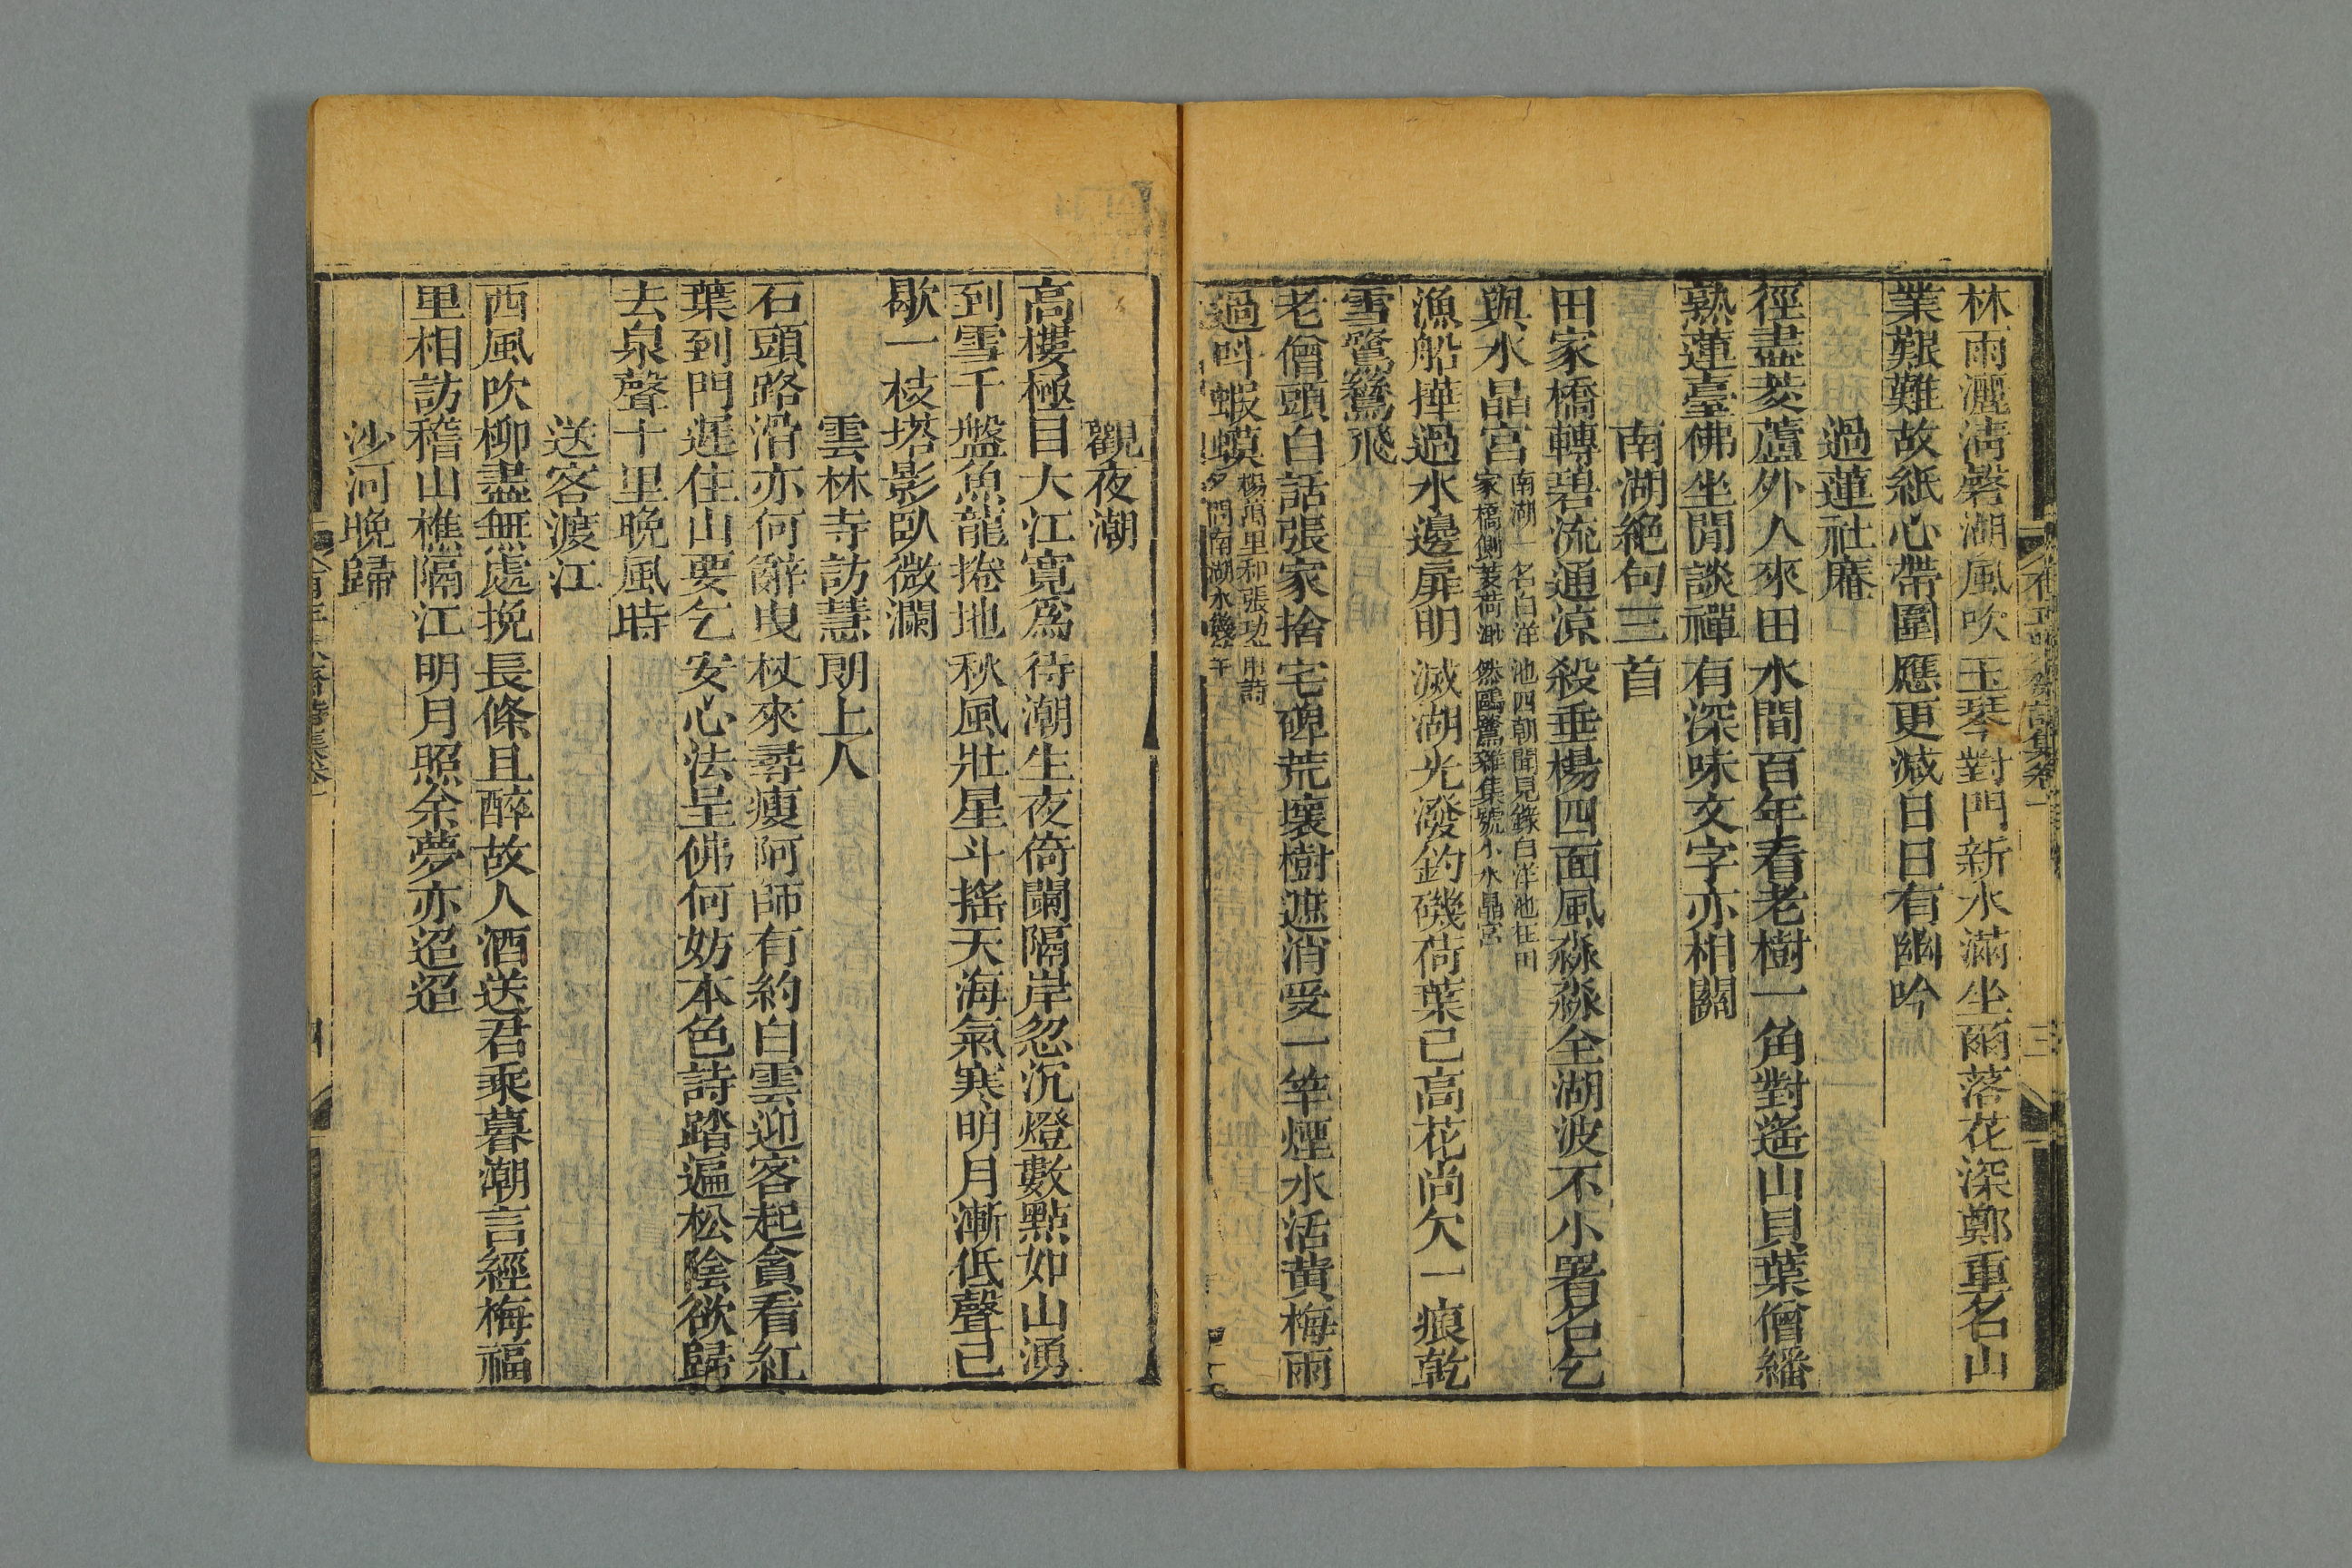 林雨灑淸磬湖風吹玉琴對門新水滿坐雨落花深鄭重名山
業艱難故紙心帶圍應更減日日有幽吟
過蓮社庵
徑盡菱蘆外人來田水間百年看老樹一角對遙山貝葉僧繙
熟蓮臺佛坐閒談禪有深味文字亦相關
南湖絶句三首
田家橋轉碧流通涼殺垂楊四面風淼淼全湖波不小署名乞
與水晶宮南湖一名白洋池四朝聞見錄白洋池在田
家橋側菱荷渺然鷗鷺雜集號小水晶宮
漁船撶過水邊扉明滅湖光潑釣磯荷葉已高花尚欠一痕乾
雪鷺鷥飛
老僧頭白話張家捨宅碑荒壞樹遮消受一竿煙水活黃梅雨
過叫蝦蟆楊萬里和張功甫詩
夕問南湖水幾
觀夜潮
高樓極目大江寛爲待潮生夜倚闌隔岸忽沉燈數點如山湧
到雪千盤魚龍捲地秋風壯星斗搖天海氣寒明月漸低聲已
歇一枝塔影臥微瀾
雲林寺訪慧朗上人
石頭路滑亦何辭曳杖來尋瘦阿師有約白雲迎客起貪看紅
葉到門遲住山要乞安心法呈佛何妨本色詩踏遍松陰欲歸
去泉聲十里晚風時
送客渡江
西風吹柳盡無處挽長條且醉故人酒送君乘暮潮言經梅福
里相訪稽山樵隔江明月照余夢亦迢迢
沙河晚歸